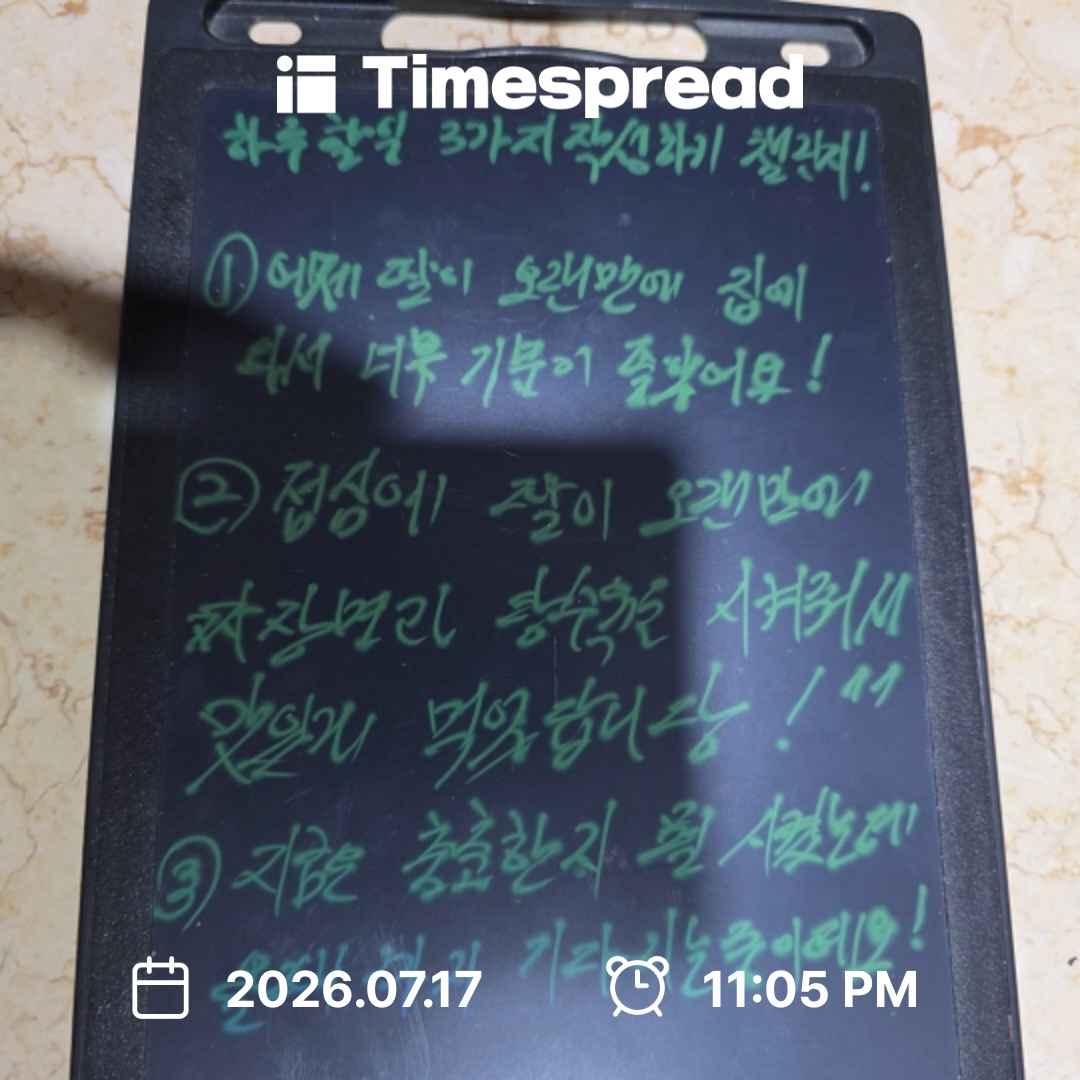 Timespread
하루 할일 3가지 작성하기 챌린지!
① 어제 딸이 오랜만에 집에
와서 너무 기분이 좋았어요!
② 점심에 딸이 오랜만에
짜장면과 탕수육을 시켜줘서
맛있게 먹었답니당! ^^
③ 지금은 출출한지 뭘 시켰는데
기다리는 중이에요!
2026.07.17
11:05 PM